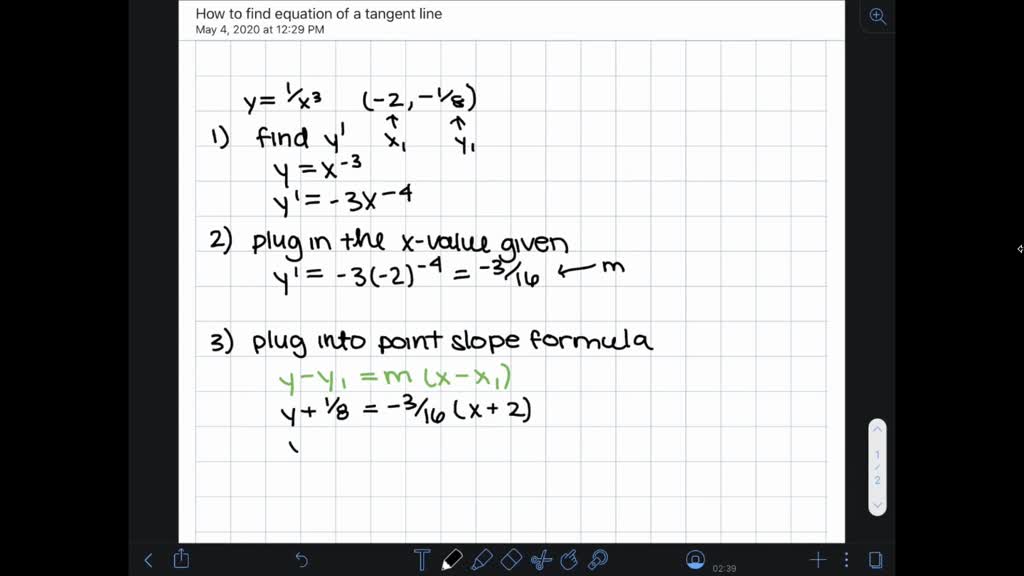 How to find equation of a tangent line
May 4, 2020 at 12:29 PM
y = 1/x³ (-2, -1/8)
↑ ↑
1) find y' x₁ y₁
y = x⁻³
y' = -3x⁻⁴
2) plug in the x-value given
y' = -3(-2)⁻⁴ = -3/16 ← m
3) plug into point slope formula
y - y₁ = m (x - x₁)
y + 1/8 = -3/16 (x + 2)
1
/
2
T
02:39